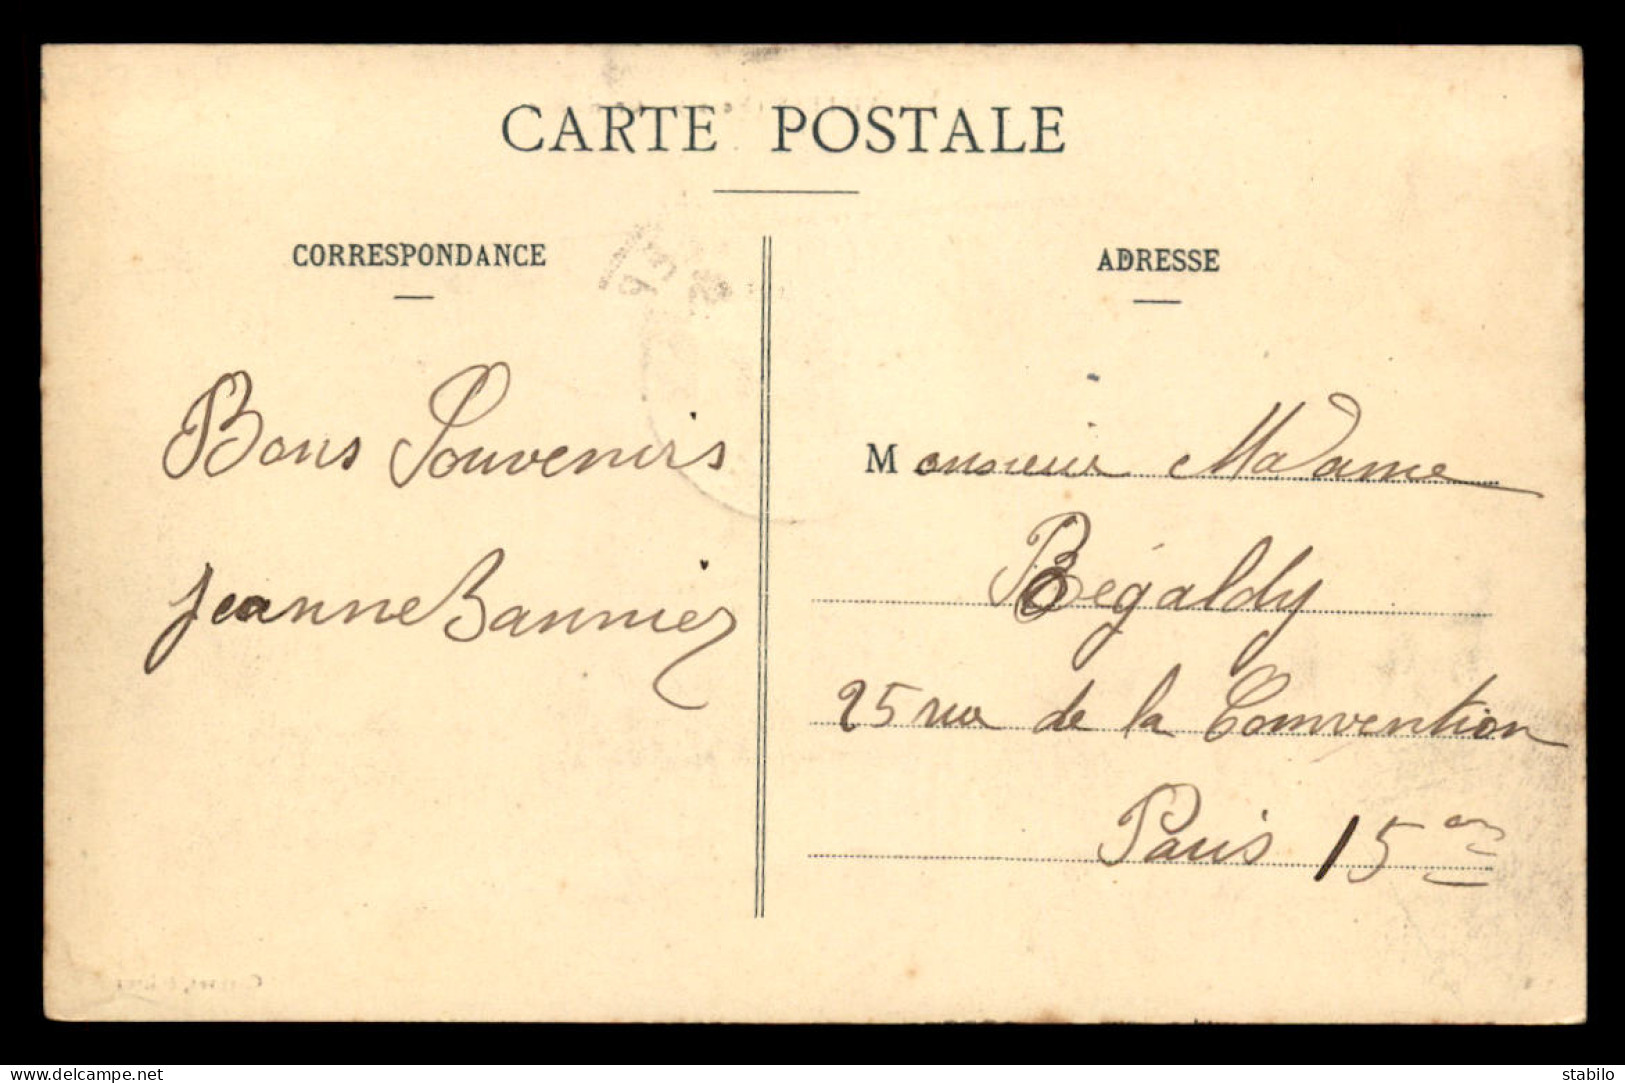 CARTE POSTALE
CORRESPONDANCE
ADRESSE
Bons Souvenirs
Jeanne Bannier
Monsieur Madame
Bégaldy
25 rue de la Convention
Paris 15
www.delcampe.net
stabilo